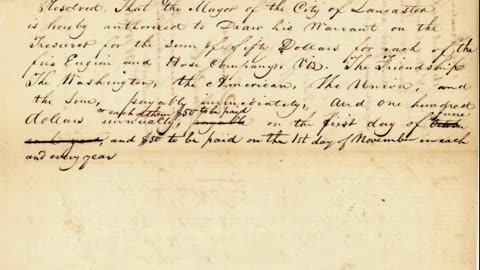 Resolved. That the Mayor of the City of Lancaster
is hereby authorized to Draw his Warrant on the
Tresurer for the sum of fifty Dollars for each of the
five Engine and Hose Companys, Viz. The Friendship
The Washington, the American, The Union, and
the Sun, payable immediately, And one hundred
each of them $50 to be paid June
dollars annually, payable on the first day of
each year, and $50 to be paid on the 1st day of November in each
and every year